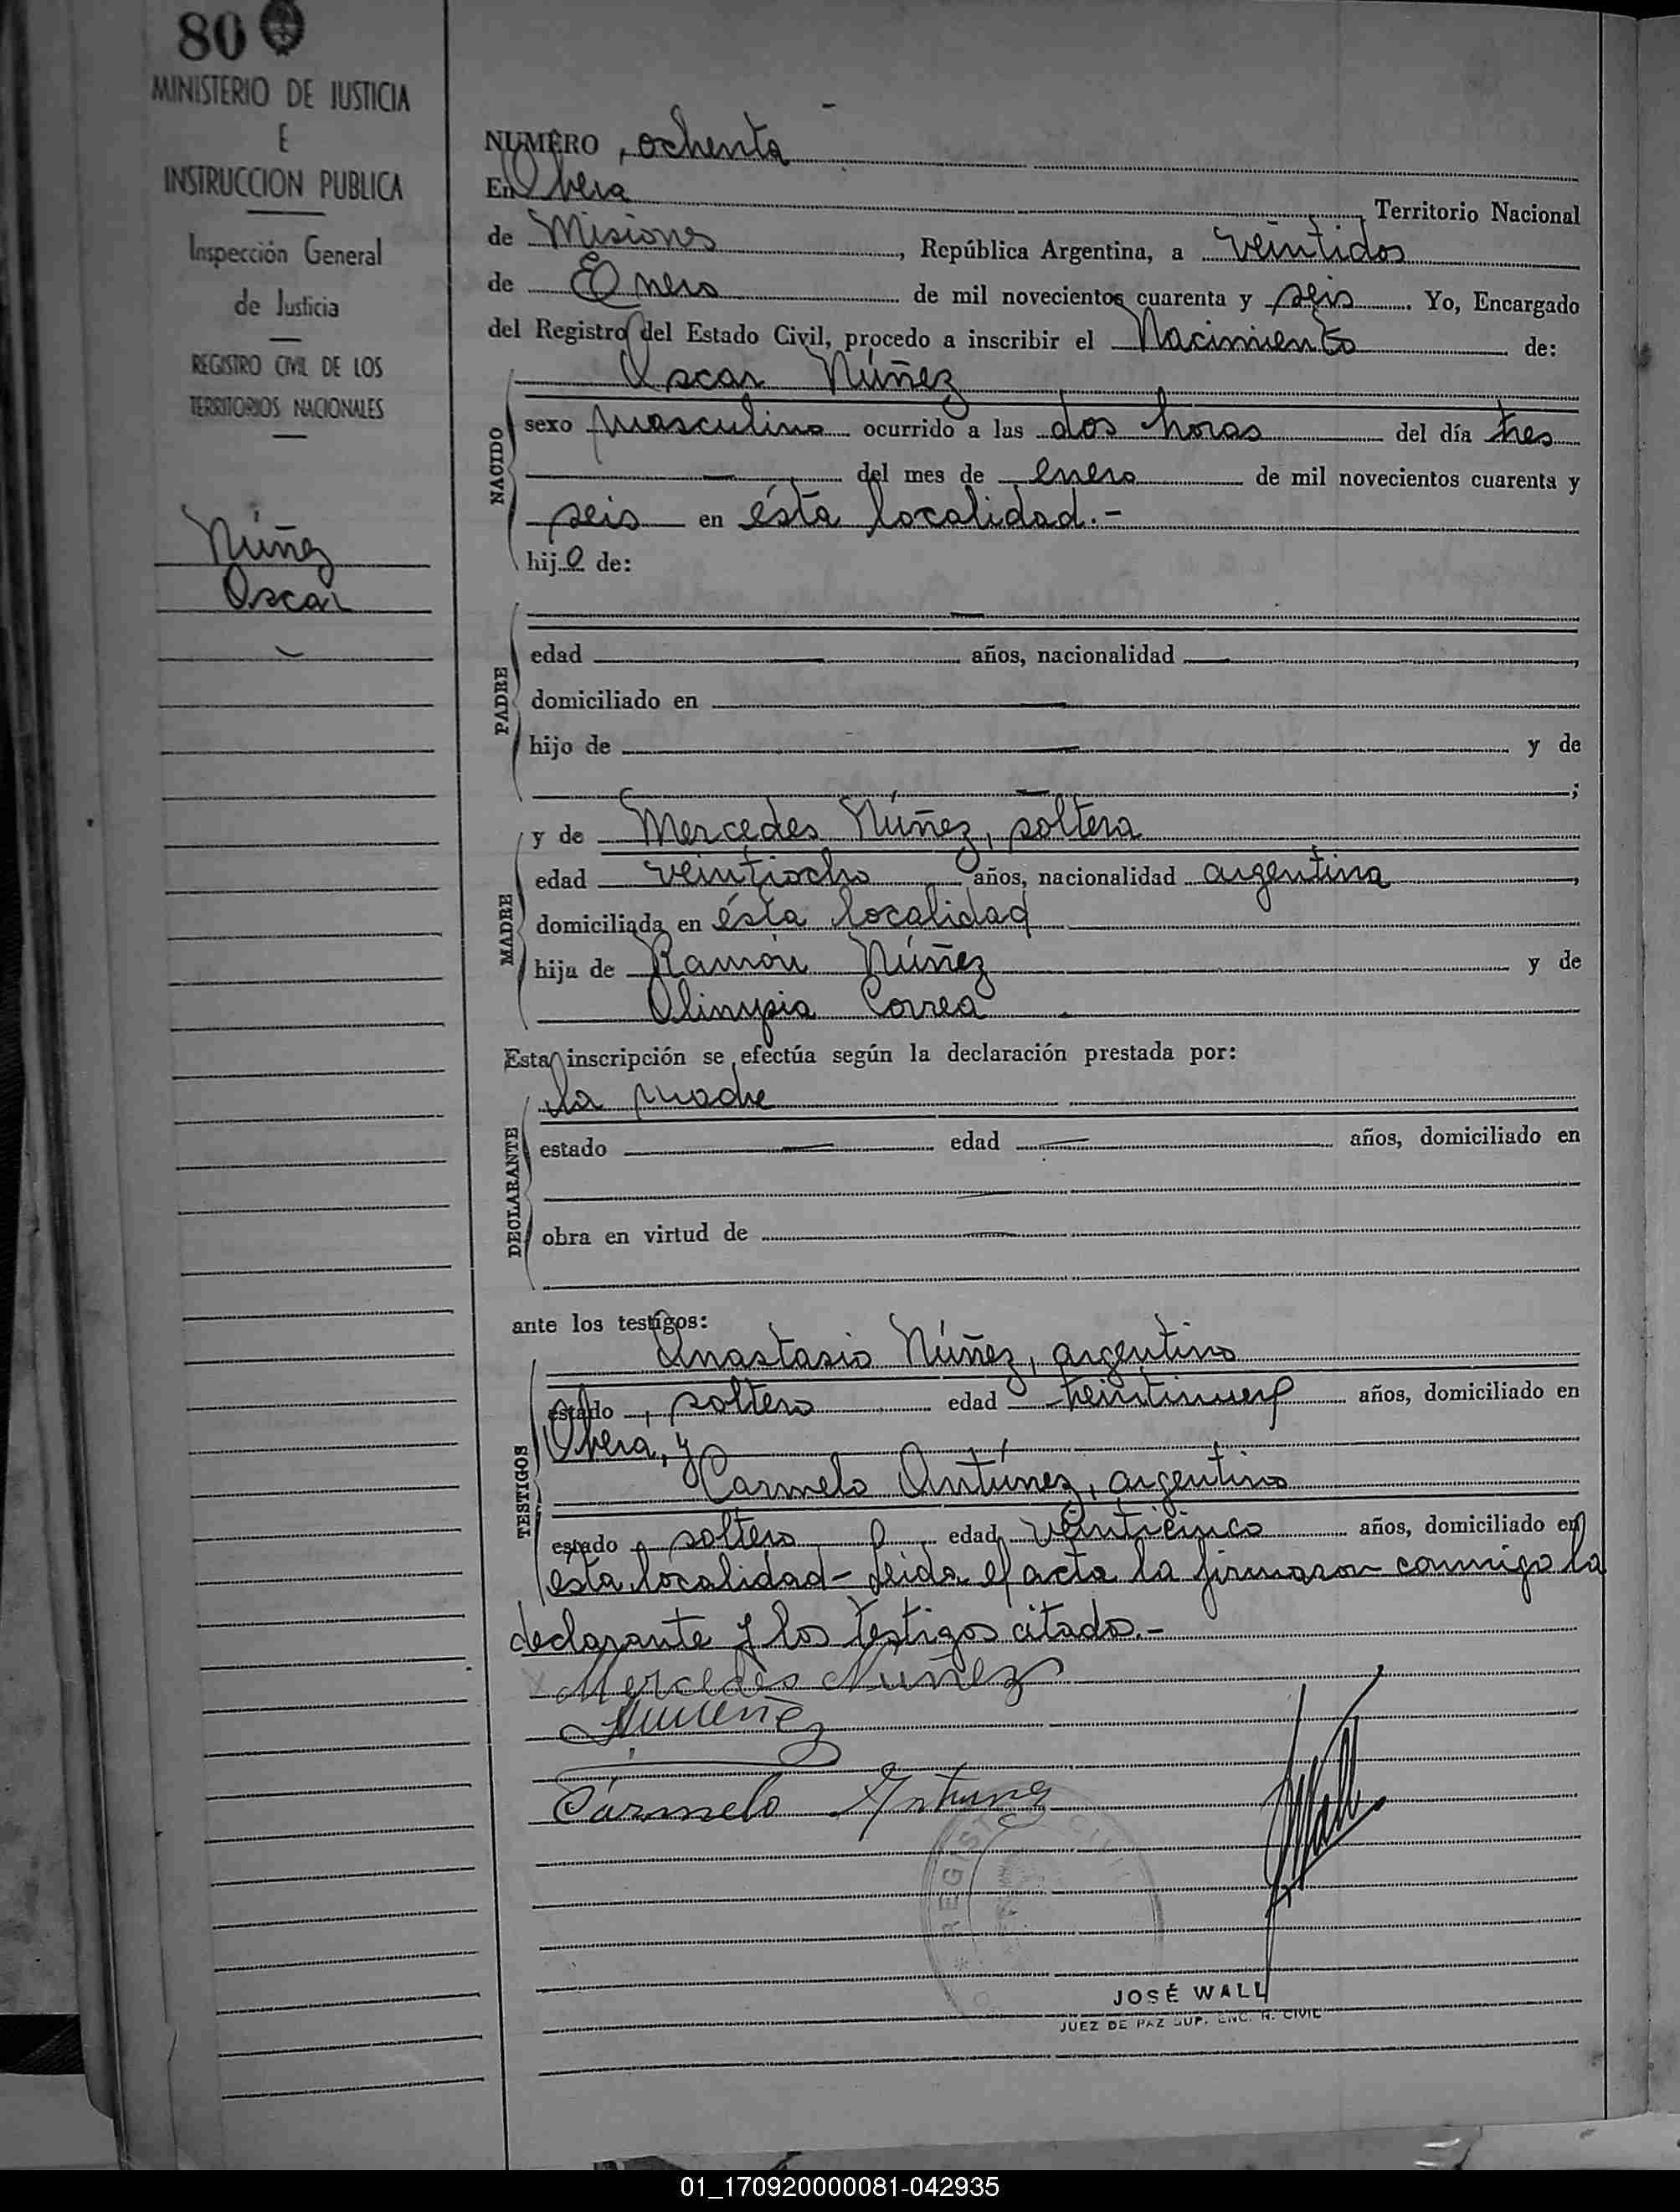 80
MINISTERIO DE JUSTICIA
E
INSTRUCCION PUBLICA
Inspección General
de Justicia
REGISTRO CIVIL DE LOS
TERRITORIOS NACIONALES
Núñez
Oscar
NUMERO, ochenta
En Obera Territorio Nacional
de Misiones, República Argentina, a veintidos
de Enero de mil novecientos cuarenta y seis. Yo, Encargado
del Registro del Estado Civil, procedo a inscribir el Nacimiento de:
NACIDO
Oscar Núñez
sexo masculino ocurrido a las dos horas del día tres
del mes de enero de mil novecientos cuarenta y
seis en ésta localidad.-
hijo de:
PADRE
edad años, nacionalidad ,
domiciliado en
hijo de y de
;
MADRE
y de Mercedes Núñez, soltera
edad veintiocho años, nacionalidad argentina,
domiciliada en ésta localidad
hija de Ramón Núñez y de
Olimpia Correa
Esta inscripción se efectúa según la declaración prestada por:
DECLARANTE
la madre
estado edad años, domiciliado en
obra en virtud de
ante los testigos:
TESTIGOS
Anastasio Núñez, argentino
estado, soltero edad años, domiciliado en
Obera, y
Carmelo Antúnez, argentino
estado, soltero edad veinticinco años, domiciliado en
esta localidad - Leida el acta la firmaron conmigo la
declarante y los testigos citado.-
Mercedes Nuñez
Carmelo Antunez
REGISTRO CIVIL
JOSÉ WALL
JUEZ DE PAZ SUP. ENC. R. CIVIL
01_170920000081-042935